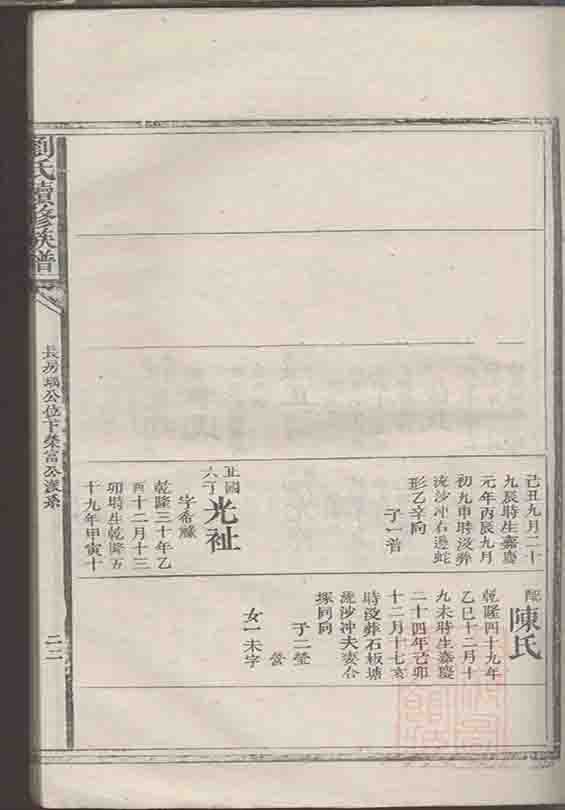 己丑九月二十
九辰時生嘉慶
元年丙辰九月
初九申時沒葬
流沙冲右邊蛇
形乙辛向
子一普
六子
光祉
字希濂
乾隆三十年乙
酉十二月十三
卯時生乾隆五
十九年甲寅十
配
陳氏
乾隆四十九年
乙巳十二月十
九未時生嘉慶
二十四年己卯
十二月十七亥
時沒葬石板塘
流沙冲夫妻合
塚同向
子二瑩
營
女一未字
劉氏續修族譜
長房瑀公位下榮富公派系
二二